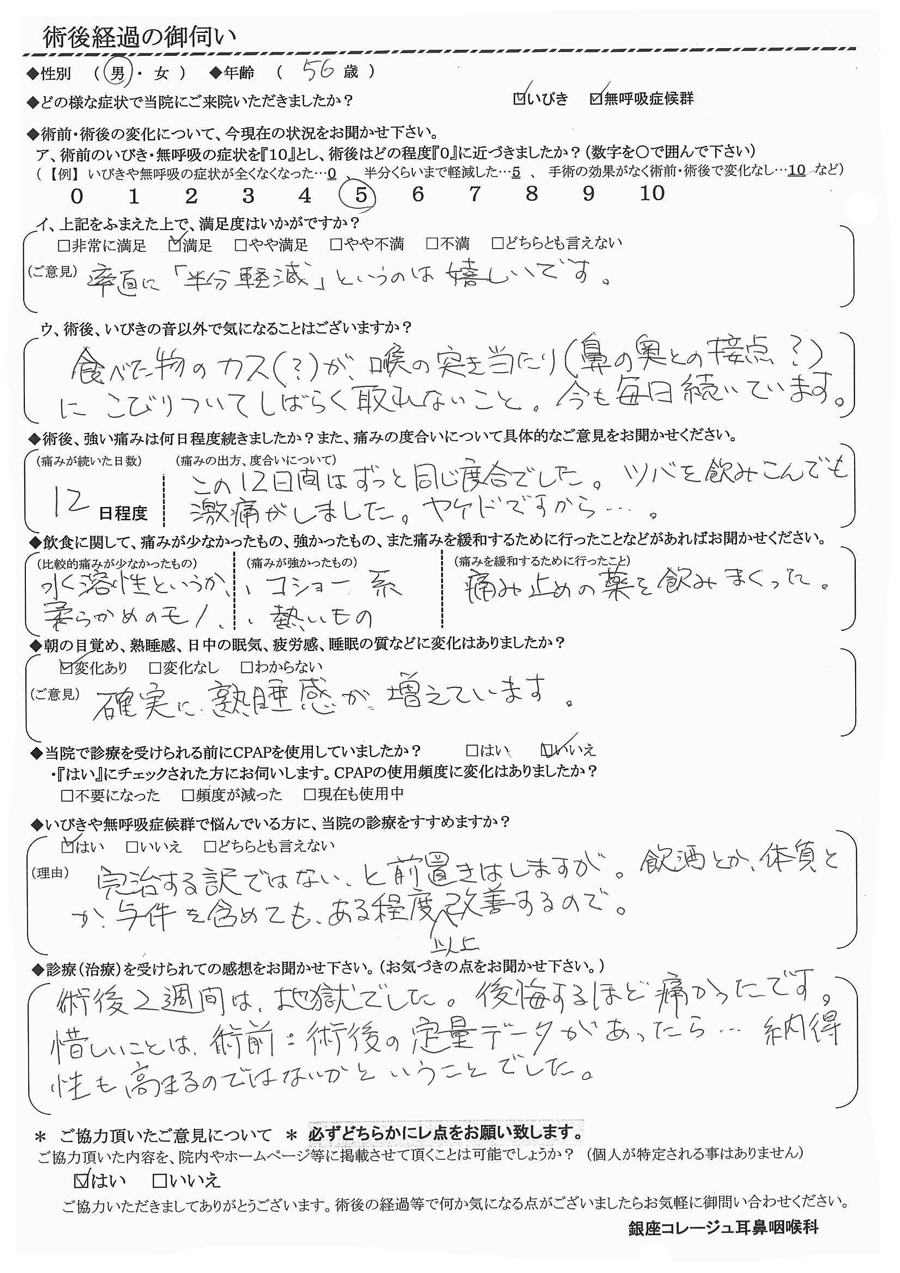 術後経過の御伺い
◆性別 ( 男 ・ 女 ) ◆年齢 ( 56 歳 )
◆どの様な症状で当院にご来院いただきましたか? ☑いびき ☑無呼吸症候群
◆術前・術後の変化について、今現在の状況をお聞かせ下さい。
ア、術前のいびき・無呼吸の症状を『10』とし、術後はどの程度『0』に近づきましたか?(数字を〇で囲んで下さい)
(【例】いびきや無呼吸の症状が全くなくなった…0 、半分くらいまで軽減した…5 、手術の効果がなく術前・術後で変化なし…10 など)
0 1 2 3 4 5 6 7 8 9 10
イ、上記をふまえた上で、満足度はいかがですか?
□非常に満足 ☑満足 □やや満足 □やや不満 □不満 □どちらとも言えない
(ご意見) 率直に「半分軽減」というのは嬉しいです。
ウ、術後、いびきの音以外で気になることはございますか?
食べた物のカス(?)が、喉の突き当たり(鼻の奥との接点?)
に こびりついてしばらく取れないこと。今も毎日続いています。
◆術後、強い痛みは何日程度続きましたか?また、痛みの度合いについて具体的なご意見をお聞かせください。
(痛みが続いた日数) (痛みの出方、度合いについて)
この12日間はずっと同じ度合でした。ツバを飲みこんでも
12 日程度 激痛がしました。ヤケドですから…。
◆飲食に関して、痛みが少なかったもの、強かったもの、また痛みを緩和するために行ったことなどがあればお聞かせください。
(比較的痛みが少なかったもの) (痛みが強かったもの) (痛みを緩和するために行ったこと)
水溶性というか、 、コショー系 痛み止めの薬を飲みまくった。
柔らかめのモノ、 、熱いもの
◆朝の目覚め、熟睡感、日中の眠気、疲労感、睡眠の質などに変化はありましたか?
☑変化あり □変化なし □わからない
(ご意見) 確実に、熟睡感が、増えています。
◆当院で診療を受けられる前にCPAPを使用していましたか? □はい ☑いいえ
・『はい』にチェックされた方にお伺いします。CPAPの使用頻度に変化はありましたか?
□不要になった □頻度が減った □現在も使用中
◆いびきや無呼吸症候群で悩んでいる方に、当院の診療をすすめますか?
☑はい □いいえ □どちらとも言えない
(理由) 完治する訳ではない、と前置きはしますが。飲酒とか、体質と
か、与件を含めても、ある程度改善するので。
以上
◆診療(治療)を受けられての感想をお聞かせ下さい。(お気づきの点をお聞かせ下さい。)
術後2週間は、地獄でした。後悔するほど痛かったです。
惜しいことは、術前:術後の定量データがあったら… 納得
性も高まるのではないかということでした。
* ご協力頂いたご意見について * 必ずどちらかにレ点をお願い致します。
ご協力頂いた内容を、院内やホームページ等に掲載させて頂くことは可能でしょうか? (個人が特定される事はありません)
☑はい □いいえ
ご協力いただきましてありがとうございます。術後の経過等で何か気になる点がございましたらお気軽に御問い合わせください。
銀座コレージュ耳鼻咽喉科